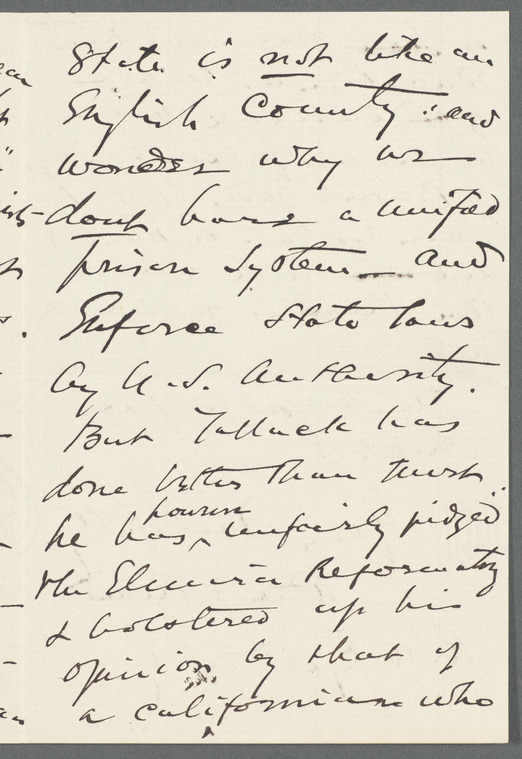 State is not like an
English County: and
wonders why we
dont have a unified
prison system and
Enforce State laws
by U.S. Authority.
But Tallack has
done better than most.
however
he has unfairly judged
the Elmira Reformatory
& bolstered up his
opinion by that of
a californian who